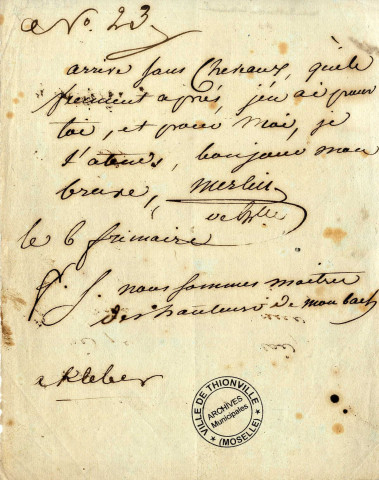 N.º 23
arrive sans Chevaux, qu'ils
viennent après, j'en ai pour
toi, et pour moi, je
t'atends, bonjour mon
brave, merlin
de Th.lle
le 6 frimaire
P. S. nous sommes maitre
des hauteurs de monbach
a Kleber
VILLE DE THIONVILLE
ARCHIVES
Municipales
(MOSELLE)